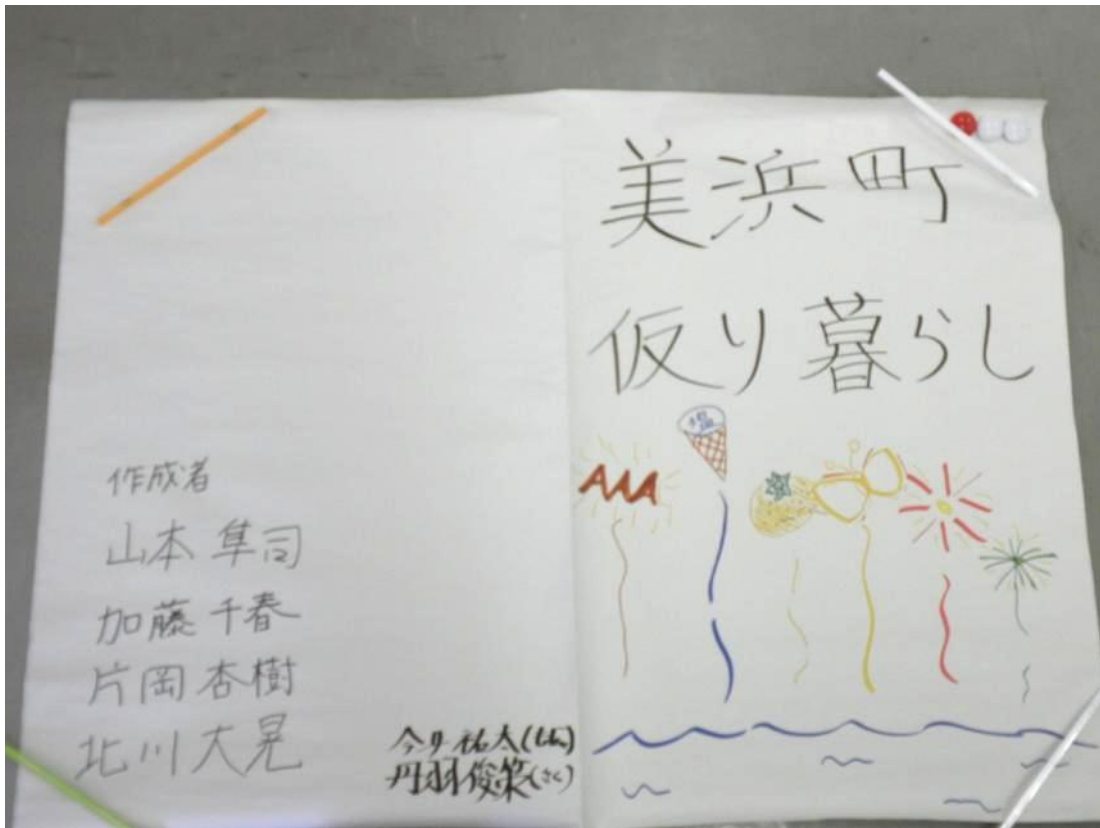 美浜町
仮り暮らし
塩
作成者
山本 隼司
加藤 千春
片岡 杏樹
北川 大晃
丹羽俊策(さく)